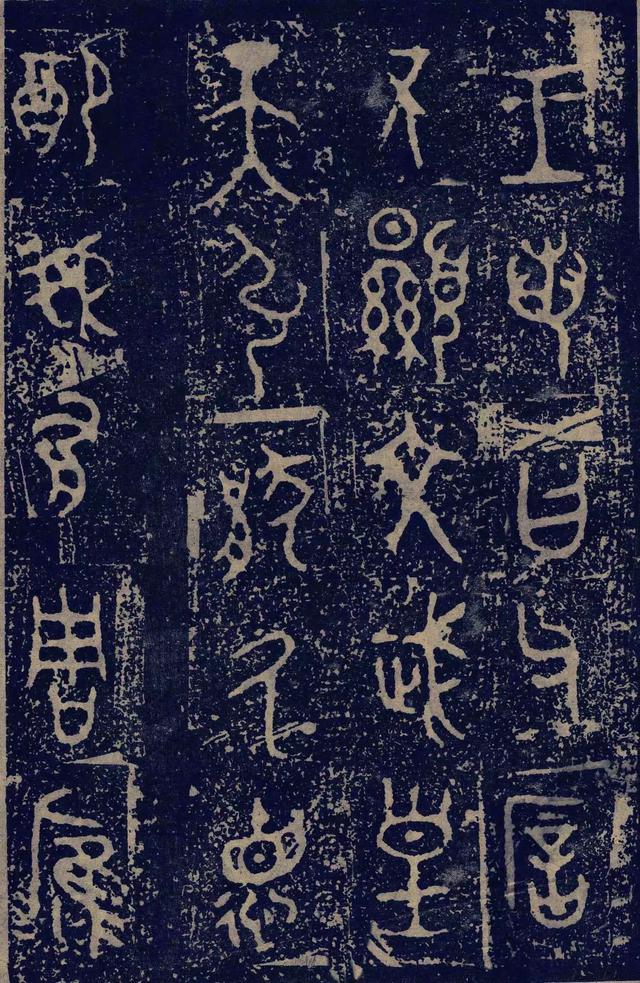 王若曰父㕌
不顯文武皇
天引猒厥德
配我有周膺